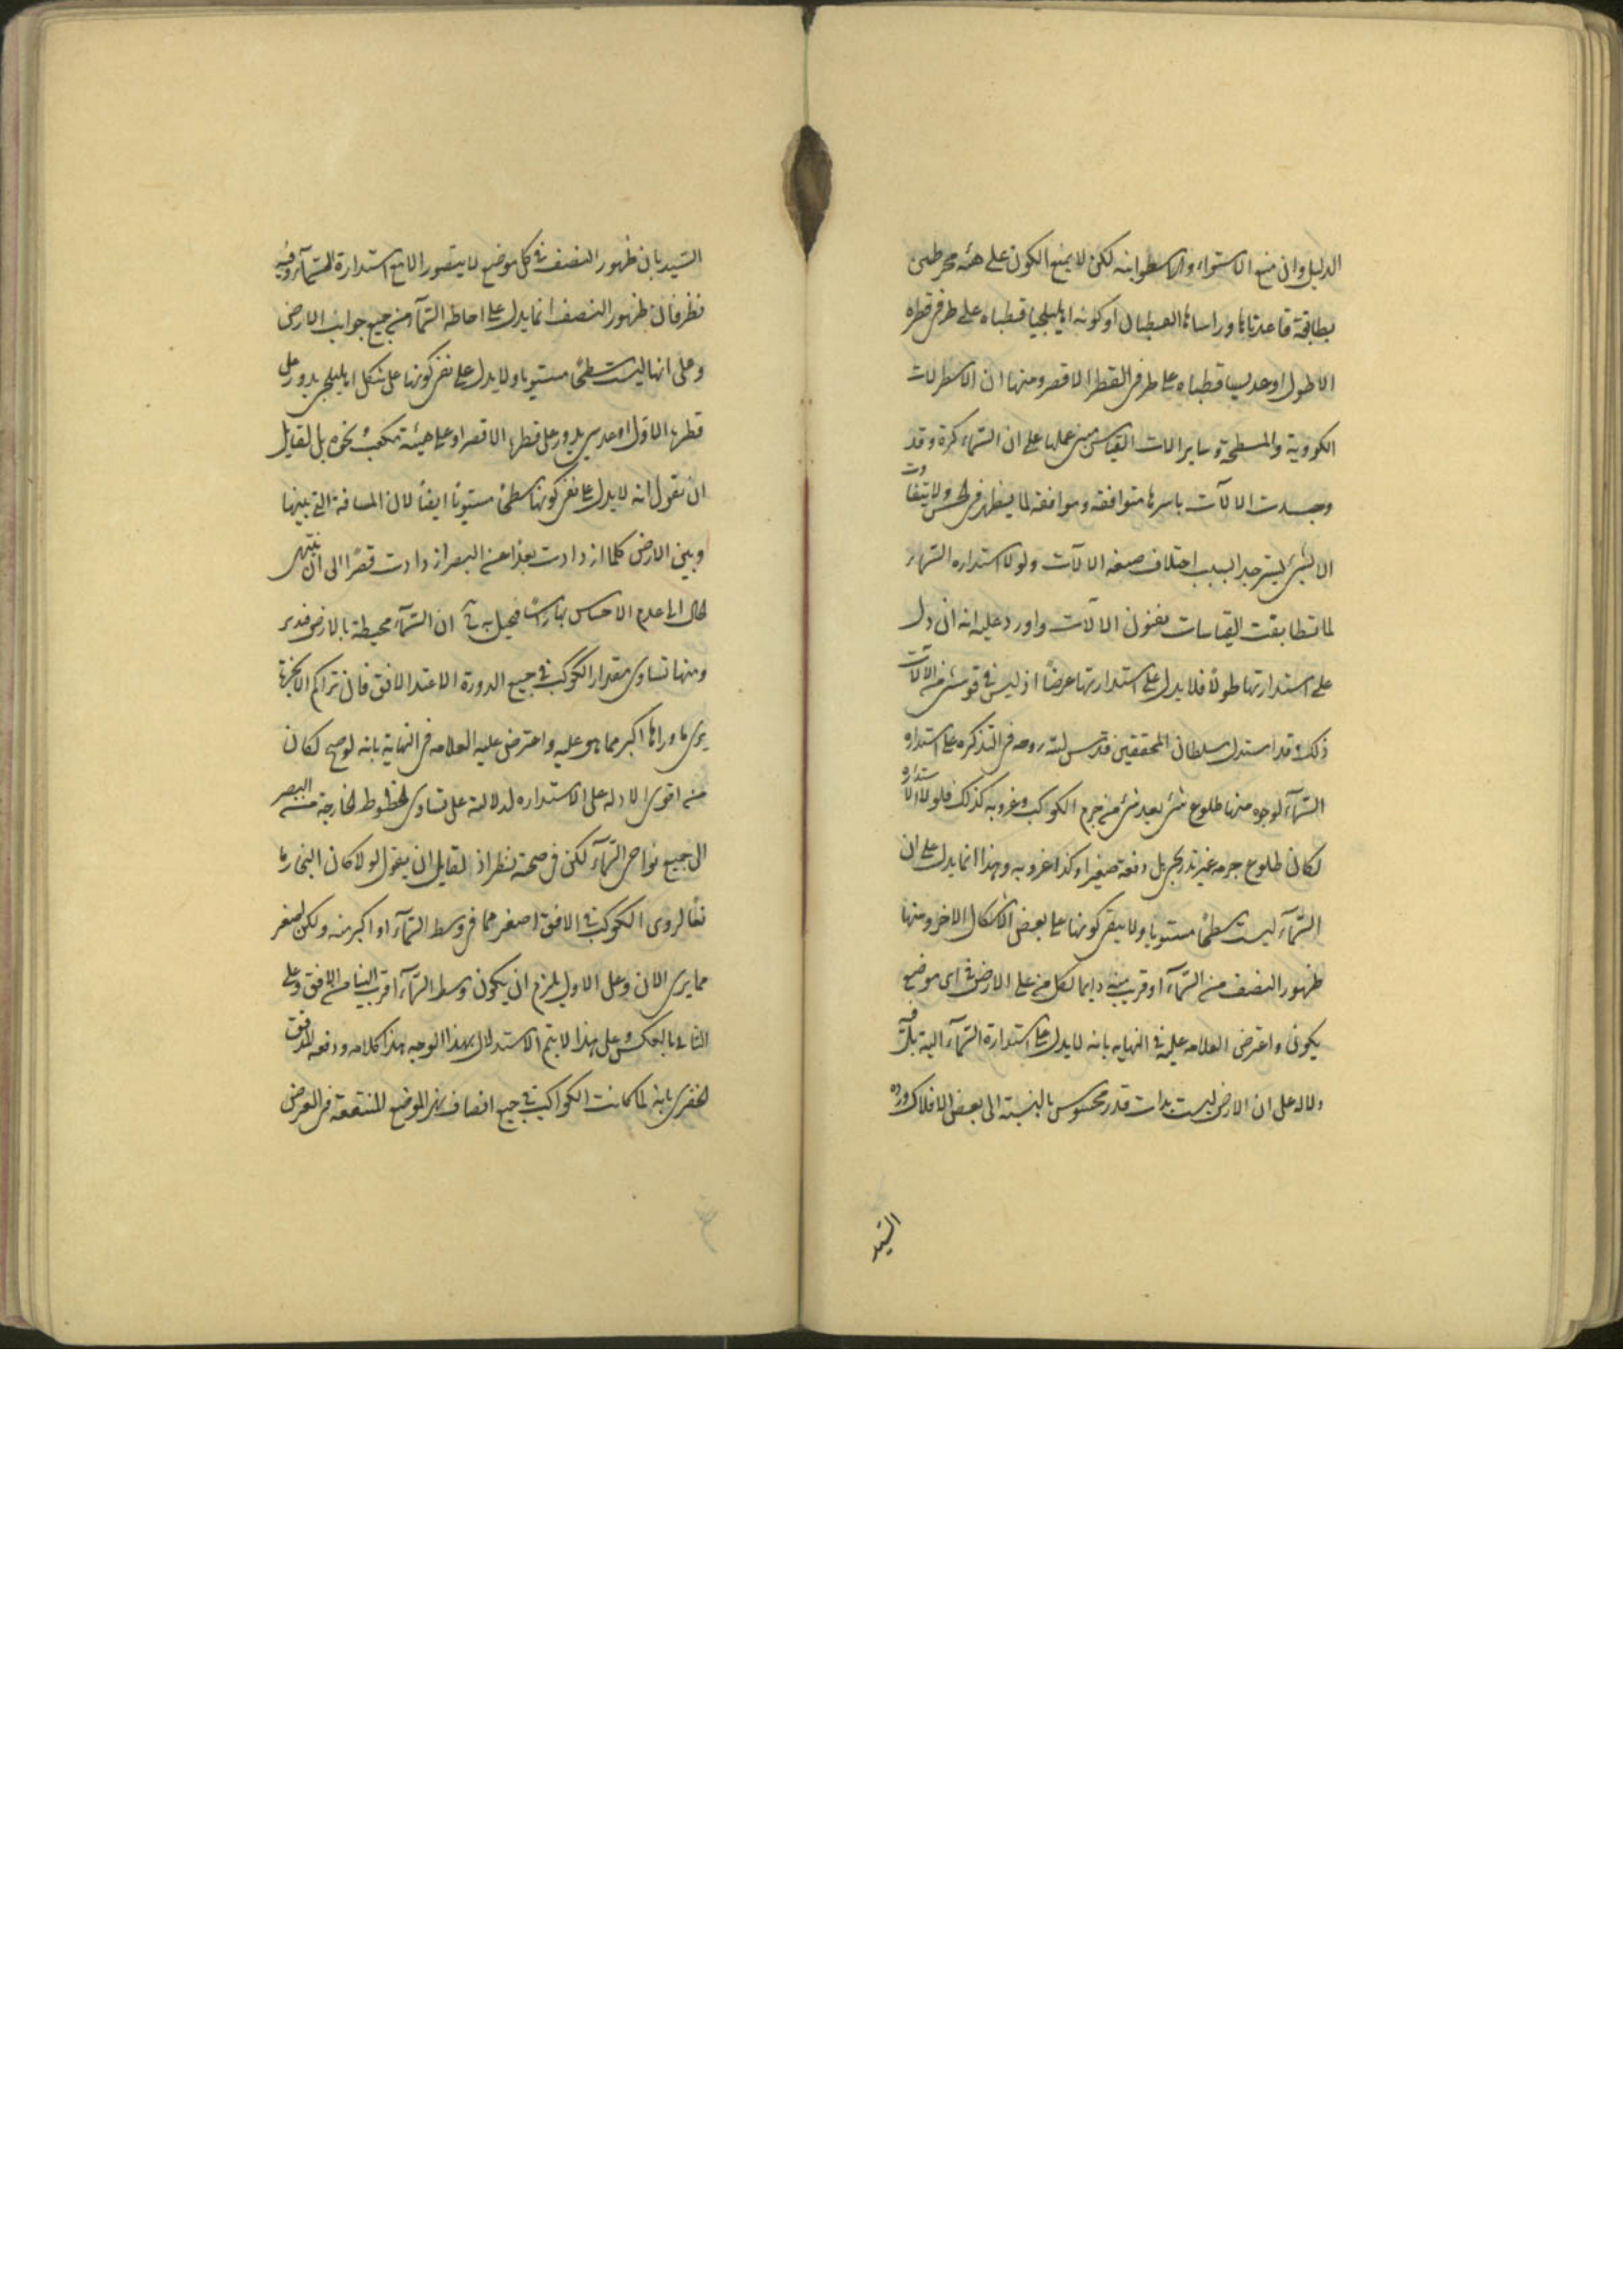 الدليل وان منع الاستواء والاسطوانه لكن لا يمنع الكون على هيئه مخروطين
بطابقة قاعدتاها وراساها القطبان او كونه اهليلجيا قطباه على طرفى قطره
الاطول او عدسيا قطباه على طرفى القطر الاقصر ومنها ان الاسطرلابات
الكروية والمسطحة وساير الات القياس مبنى عملها على ان السماء كرة وقد
وجدت الالآت باسرها متوافقه وموافقه لما يظهر فى الحس ولا يتفاوت
الا بشئ يسير جدا لسبب اختلاف صنعه الالآت ولولا استداره السماء
لما تطابقت القياسات بفنون الالآت واورد عليه انه ان دل
على استدارتها طولاً فلا يدل على استدارتها عرضاً اذ ليس فى قوسى من الالآت
ذلك وقد استدل سلطان المحققين قدس لله روحه فى التذكره على استداره
السماء لوجوه منها طلوع شئ بعد شئ من جرم الكواكب وغروبه كذلك فلولا الاستداره
لكان طلوع جرمه غير تدريجى بل دفعه صغيرا وكذا غروبه وهذا انما يدل على ان
السماء ليست سطحاً مستويا ولا ينفى كونها على بعض الاشكال الاخر ومنها
ظهور النصف من السماء او قريب منه دايما لكل من على الارض فى اى موضع
يكون واعترض العلامه عليه فى النهايه بانه لا يدل على استدارة السماء البته بل فيه
دلاله على ان الارض ليست بذات قدر محسوس بالنسبة الى بعض الافلاك ورده
السيد
السيد بان ظهور النصف فى كل موضع لا يتصور الا مع استدارة السماء وفيه
نظر فان ظهور النصف انما يدل على احاطه السماء من جميع جوانب الارض
وعلى انها ليست سطحاً مستويا ولا يدل على نفى كونها على شكل اهليلجى يدور على
قطرها الاول او عدسى يدور على قطرها الاقصر او على هيئة مكعب ونحوه بل لقايل
ان يقول انه لا يدل على نفى كونها سطحاً مستويًا ايضاً لان المسافة التى بينها
وبين الارض كلما ازدادت بعدا عن البصر ازدادت قصرًا الى ان ينتهى
الحال الى عدم الاحساس بها راسًا فيخيل به ان السماء محيطة بالارض فتدبر
ومنها تساوى مقدار الكوكب فى جميع الدورة الا عند الافق فان تراكم الابخرة
يرى ما وراها اكبر مما هو عليه واعترض عليه العلامه فى النهاية بانه لو صح لكان
من اقوى الادله على الاستداره لدلالته على تساوى الخطوط الخارجة من البصر
الى جميع نواحى السماء لكن فى صحته نظر اذ لقايل ان يقول لولا كان البخار ما
نعًا لروى الكوكب فى الافق اصغر مما فى وسط السماء او اكبر منه ولكن اصغر
مما يرى الان وعلى الاول يلزم ان يكون وسط السماء اقرب الينا من الافق وعلى
الثانى بالعكس وعلى هذا لا يتم الاستدلال بهذا الوجه هذا كلامه ودفعه المدقق
الخفرى بانه لما كانت الكواكب فى جميع انصاف نهر المواضع المتفقة فى العرض